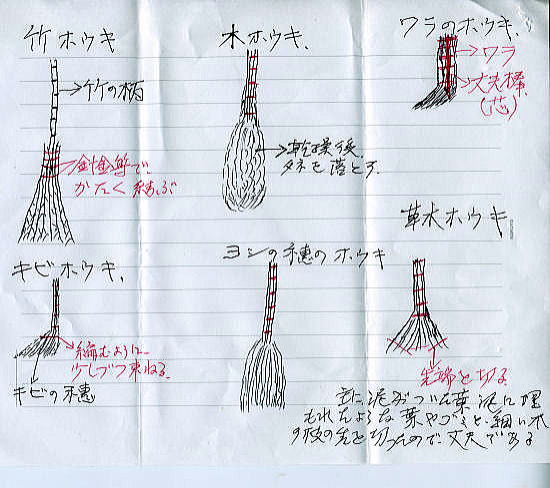 竹ホウキ
→竹の柄
針金等で
かたく結ぶ
木ホウキ.
乾燥後.
タネを落とす.
ワラのホウキ.
ワラ
丈夫棒
(芯)
キビホウキ.
編むように
少しづつ束ねる.
キビの穂
ヨシの穂のホウキ
草木ホウキ
先端を切る
主に泥がついた葉 泥に埋
もれたような葉やゴミを、細い木
の枝の先を切ったので丈夫である